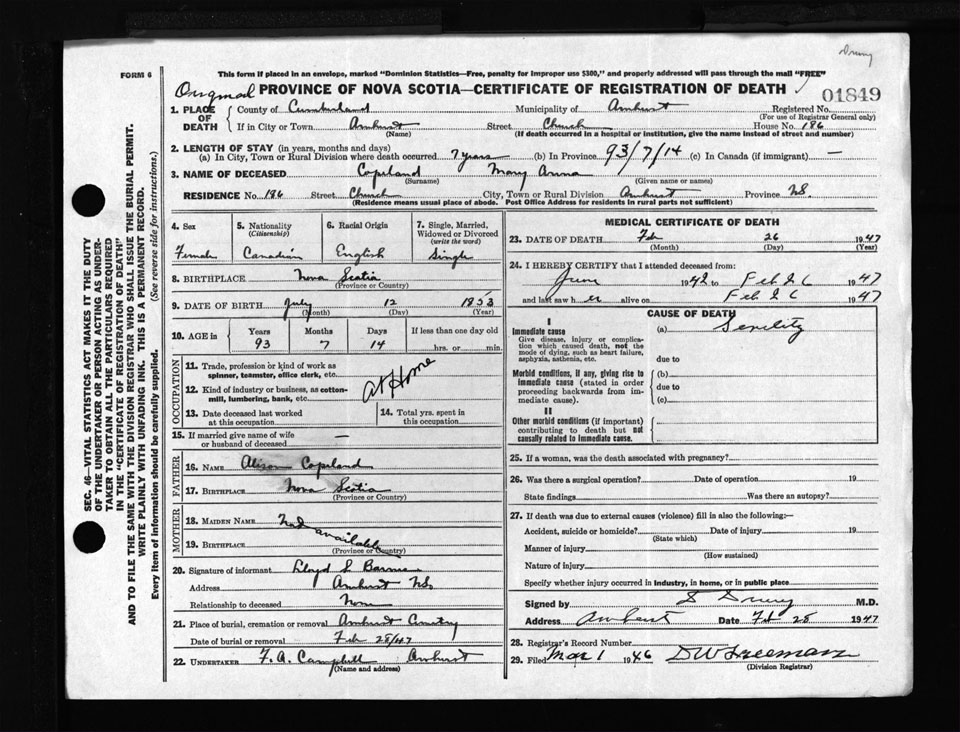 Drury
FORM 6
This form if placed in an envelope, marked "Dominion Statistics—Free, penalty for improper use $300," and properly addressed will pass through the mail "FREE"
Original PROVINCE OF NOVA SCOTIA—CERTIFICATE OF REGISTRATION OF DEATH
01849
1. PLACE OF DEATH County of Cumberland Municipality of Amherst Registered No.
(For use of Registrar General only)
If in City or Town Amherst Street Church House No. 186
(Name) (If death occurred in a hospital or institution, give the name instead of street and number)
2. LENGTH OF STAY (in years, months and days)
(a) In City, Town or Rural Division where death occurred 7 years (b) In Province 93/7/14 (c) In Canada (if immigrant) —
3. NAME OF DECEASED Copeland Mary Anna
(Surname) (Given name or names)
RESIDENCE No. 186 Street Church City, Town or Rural Division Amherst Province N.S.
(Residence means usual place of abode. Post Office Address for residents in rural parts not sufficient)
4. Sex 5. Nationality (Citizenship) 6. Racial Origin 7. Single, Married, Widowed or Divorced (write the word)
Female Canadian English Single
8. BIRTHPLACE Nova Scotia
(Province or Country)
9. DATE OF BIRTH July 12 1853
(Month) (Day) (Year)
10. AGE in Years Months Days If less than one day old
93 7 14 hrs. or min.
OCCUPATION
11. Trade, profession or kind of work as spinner, teamster, office clerk, etc.
At Home
12. Kind of industry or business, as cotton-mill, lumbering, bank, etc.
13. Date deceased last worked at this occupation
14. Total yrs. spent in this occupation
15. If married give name of wife or husband of deceased —
FATHER
16. NAME Alison Copeland
17. BIRTHPLACE Nova Scotia
(Province or Country)
MOTHER
18. MAIDEN NAME Not available
19. BIRTHPLACE
(Province or Country)
20. Signature of informant Lloyd S
Address Amherst N.S.
Relationship to deceased None
21. Place of burial, cremation or removal Amherst Cemetry
Date of burial or removal Feb 28/47
22. UNDERTAKER F. A. Campbell Amherst
(Name and address)
MEDICAL CERTIFICATE OF DEATH
23. DATE OF DEATH Feb 26 1947
(Month) (Day) (Year)
24. I HEREBY CERTIFY that I attended deceased from:
June 1942 to Feb 26 1947
and last saw her alive on Feb 26 1947
CAUSE OF DEATH
I
Immediate cause (a) Senility
Give disease, injury or complication which caused death, not the mode of dying, such as heart failure, asphyxia, asthenia, etc.
due to
Morbid conditions, if any, giving rise to immediate cause (stated in order proceeding backwards from immediate cause).
(b)
due to
(c)
II
Other morbid conditions (if important) contributing to death but not causally related to immediate cause.
25. If a woman, was the death associated with pregnancy?
26. Was there a surgical operation? Date of operation 19
State findings Was there an autopsy?
27. If death was due to external causes (violence) fill in also the following:—
Accident, suicide or homicide? Date of injury 19
(State which)
Manner of injury
(How sustained)
Nature of injury
Specify whether injury occurred in industry, in home, or in public place
Signed by D Drury M.D.
Address Amherst Date Feb 28 1947
28. Registrar's Record Number
29. Filed Mar 1 1946 D W Freeman
(Division Registrar)
SEC. 46—VITAL STATISTICS ACT MAKES IT THE DUTY
OF THE UNDERTAKER OR PERSON ACTING AS UNDER-
TAKER TO OBTAIN ALL THE PARTICULARS REQUIRED
IN THE "CERTIFICATE OF REGISTRATION OF DEATH"
AND TO FILE THE SAME WITH THE DIVISION REGISTRAR WHO SHALL ISSUE THE BURIAL PERMIT.
WRITE PLAINLY WITH UNFADING INK. THIS IS A PERMANENT RECORD.
Every item of information should be carefully supplied. (See reverse side for instructions.)